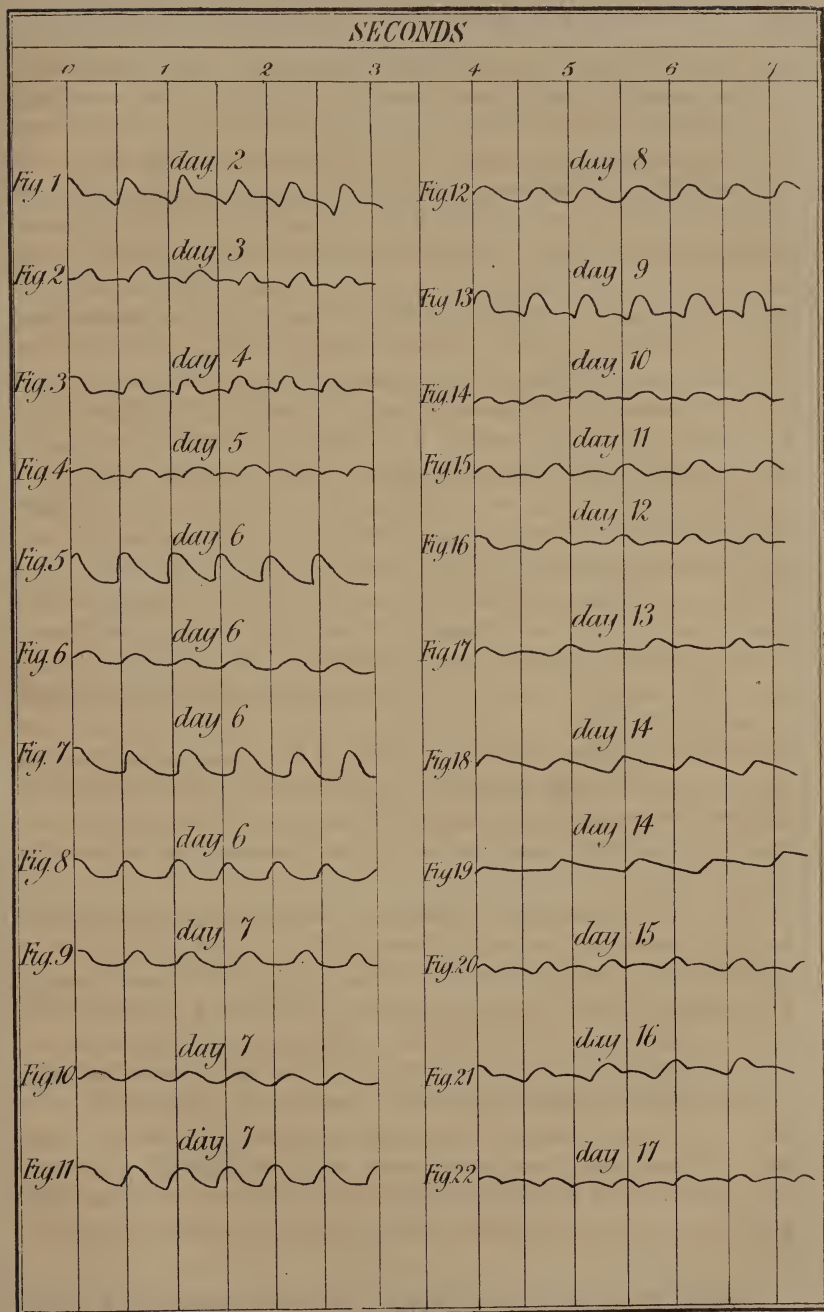 SECONDS
0 1 2 3 4 5 6 7
day 2
Fig. 1
day 3
Fig. 2
day 4
Fig. 3
day 5
Fig. 4
day 6
Fig. 5
day 6
Fig. 6
day 6
Fig. 7
day 6
Fig. 8
day 7
Fig. 9
day 7
Fig. 10
day 7
Fig. 11
day 8
Fig. 12
day 9
Fig 13
day 10
Fig. 14
day 11
Fig. 15
day 12
Fig. 16
day 13
Fig. 17
day 14
Fig 18
day 14
Fig 19
day 15
Fig. 20
day 16
Fig. 21
day 17
Fig. 22